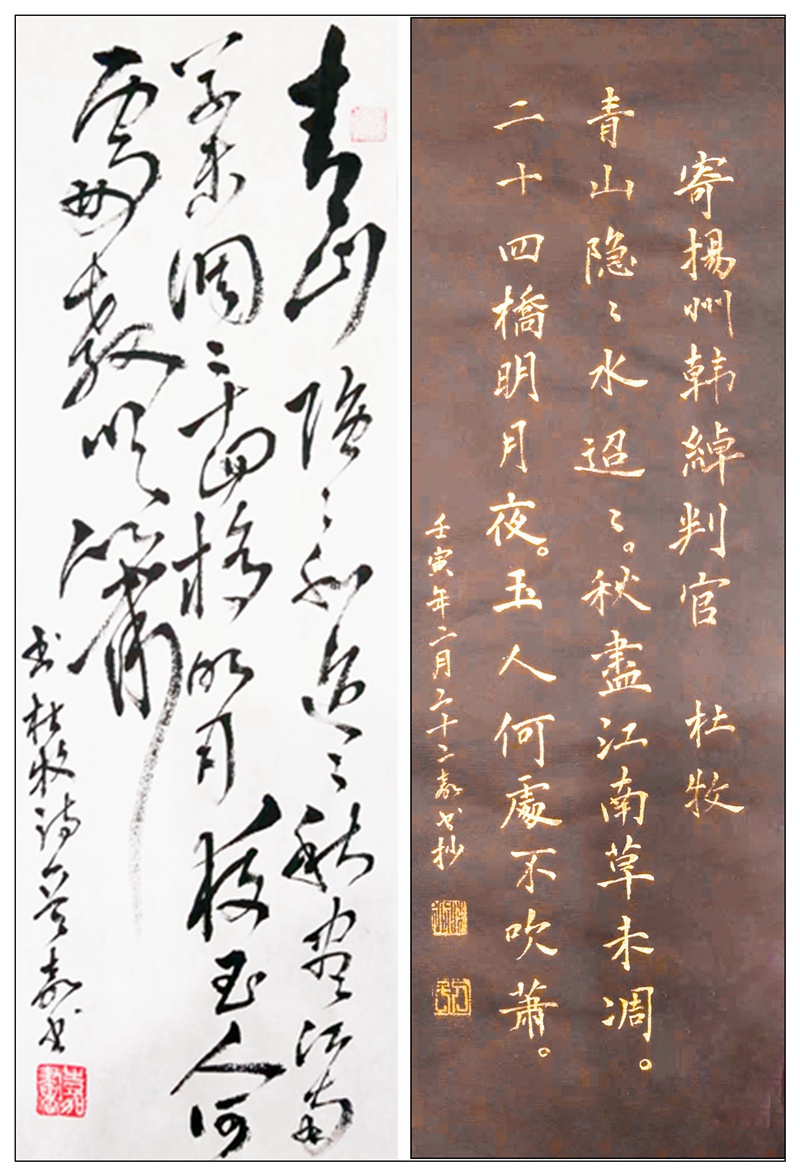 寄揚州韩綽判官 杜牧
青山隐〻水迢〻。秋盡江南草未凋。
二十四橋明月夜。玉人何處不吹蕭。
壬寅年二月二十二嘉书抄
青山隐〻水迢〻秋尽江南
草未凋二十四桥明月夜玉人何
處教吹箫
书杜牧诗嘉书